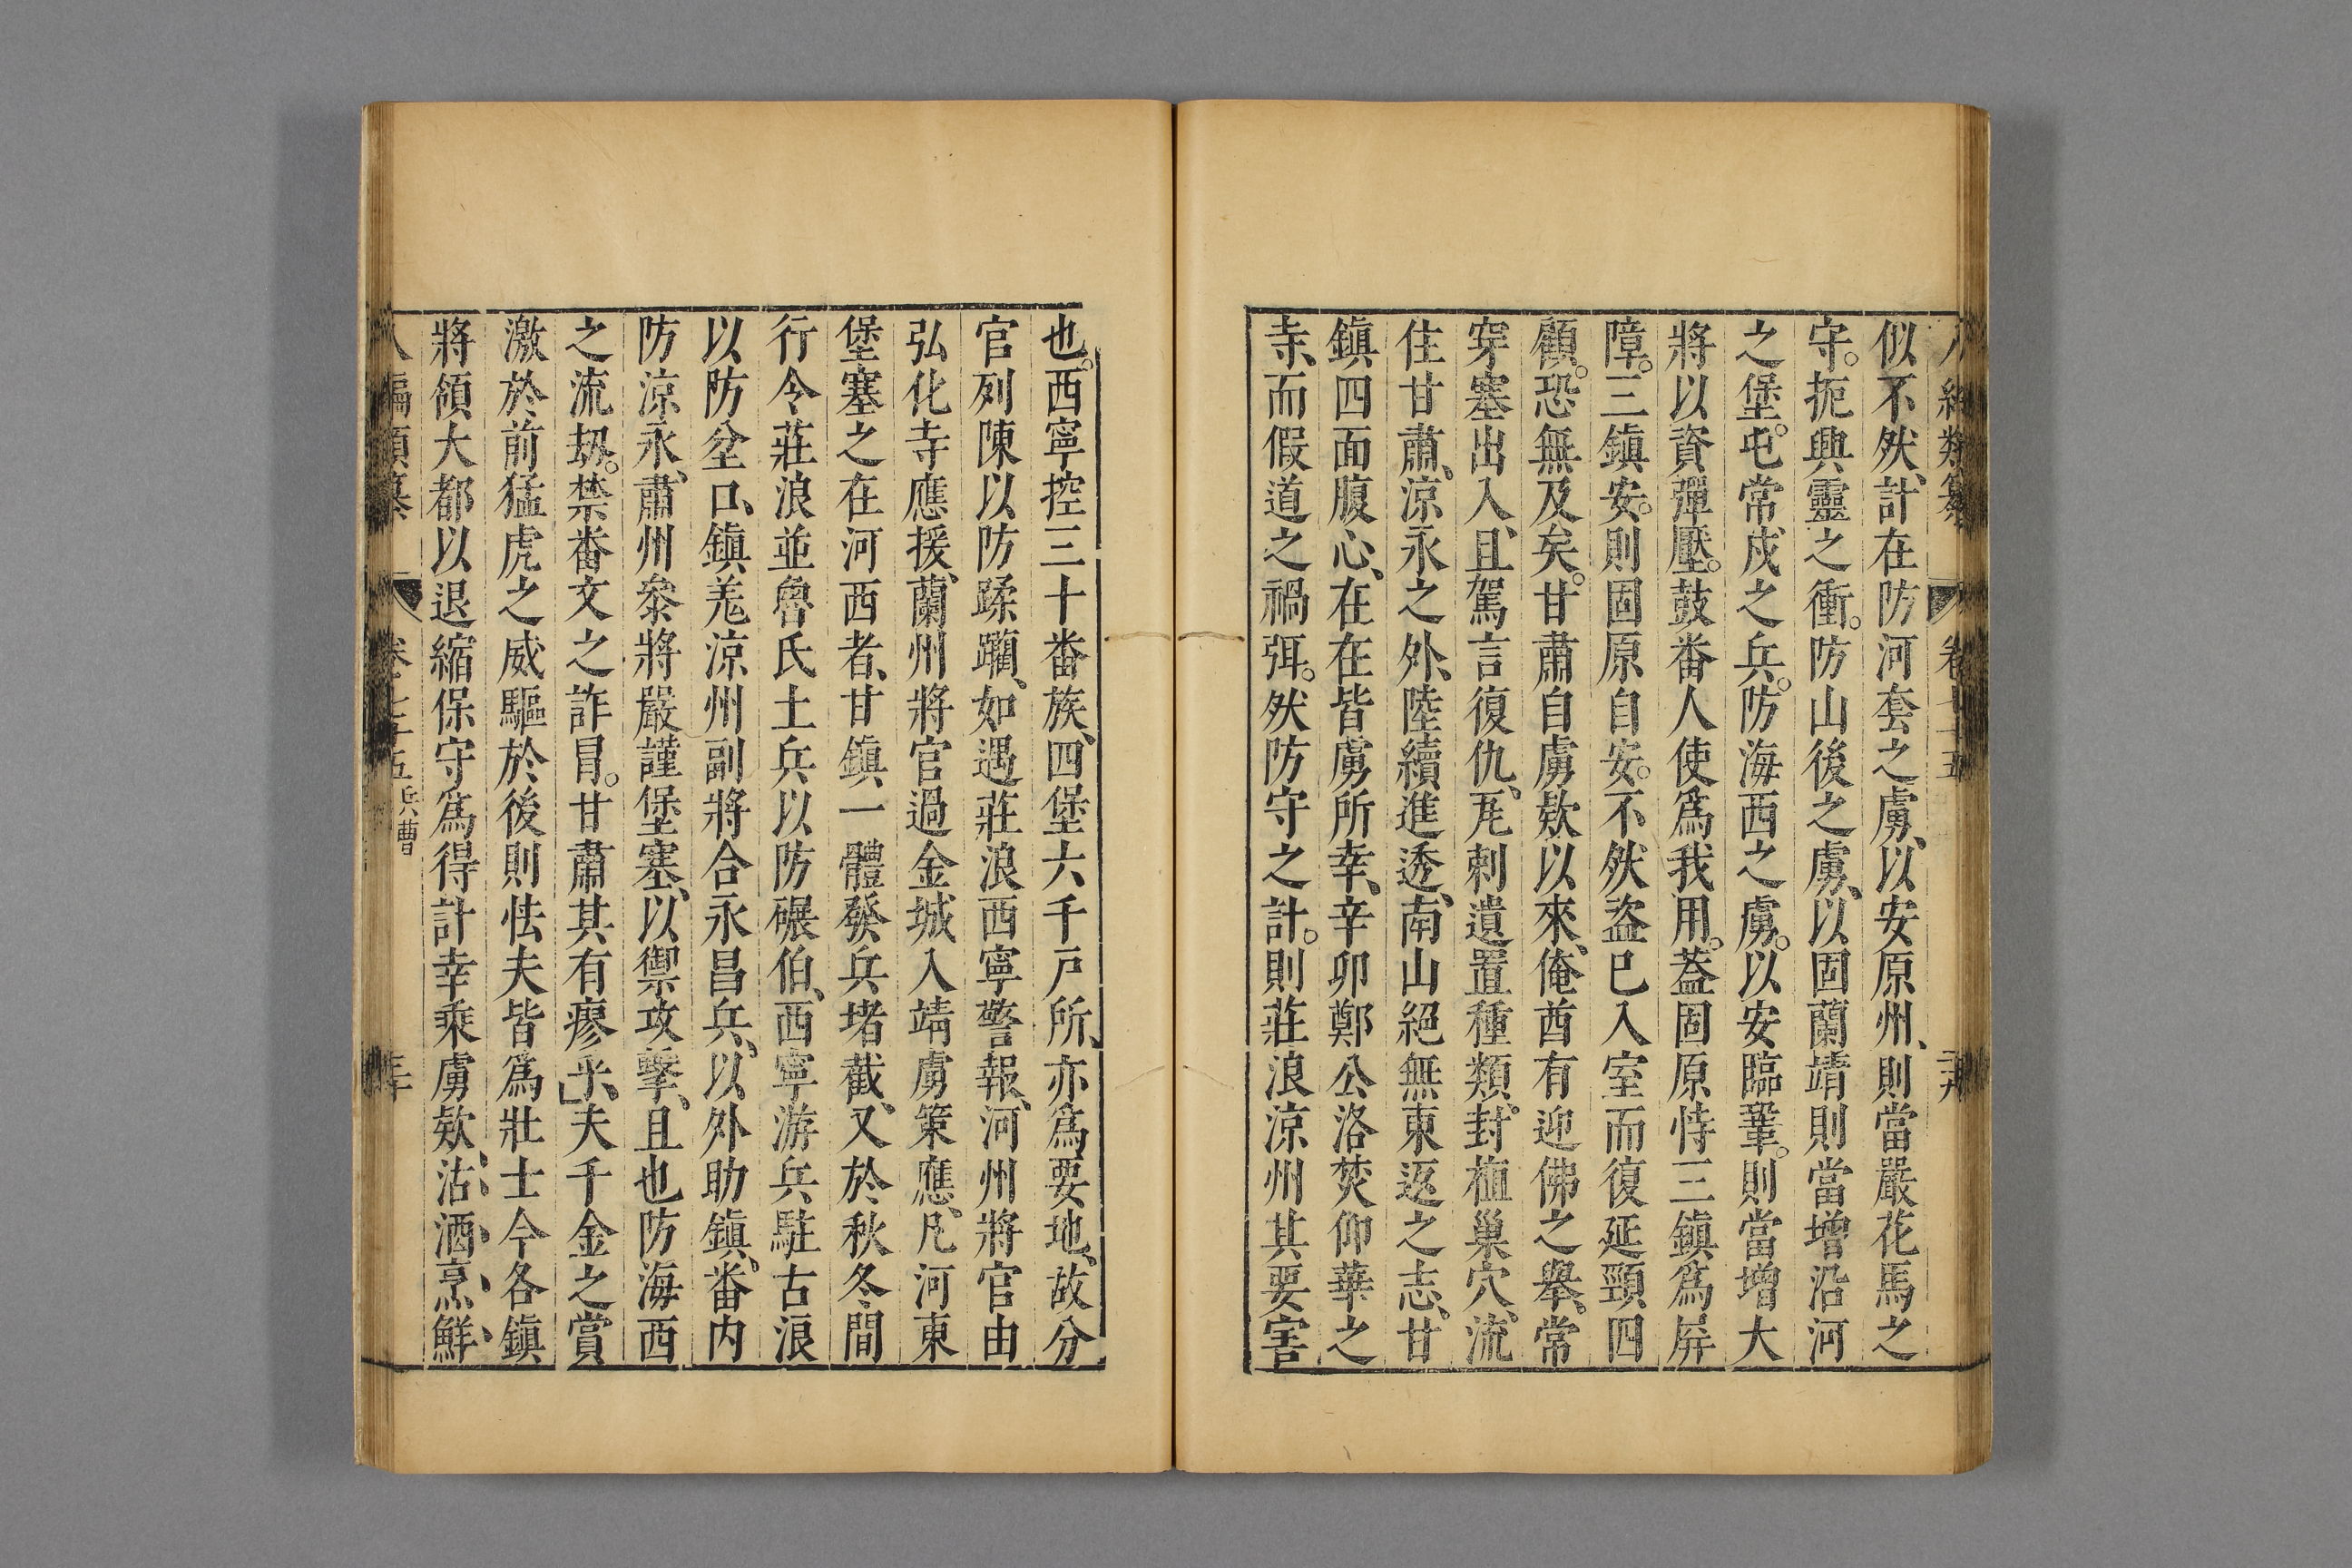 八編類纂 卷七十五 二十九
似不然、計在防河套之虜、以安原州、則當嚴花馬之
守。扼興靈之衝。防山後之虜、以固蘭靖則當增沿河
之堡。屯常戍之兵。防海西之虜。以安臨鞏。則當增大
將以資彈壓。鼓番人使爲我用。蓋固原恃三鎮爲屏
障。三鎮安。則固原自安。不然盜已入室而復延頸四
顧。恐無及矣。甘肅自虜欵以來、俺酋有迎佛之舉、常
穿塞出入、且駕言復仇、瓦剌遺置種類、封植巢穴、流
住甘肅、涼永之外、陸續進透、南山絕無東返之志、甘
鎮四面腹心、在在皆虜所幸、辛卯鄭公洛焚仰華之
寺、而假道之禍弭。然防守之計。則莊浪涼州其要害
也。西寧控三十番族、四堡六千戸所、亦爲要地、故分
官列陳以防蹂躪、如遇莊浪西寧警報、河州將官由
弘化寺應援、蘭州將官過金城入靖虜策應、凡河東
堡塞之在河西者、甘鎮一體發兵堵截、又於秋冬間
行令莊浪並魯氏土兵以防碾伯、西寧游兵駐古浪
以防坌口、鎮羌涼州副將合永昌兵、以外助鎮、番内
防涼永、肅州叅將嚴謹堡塞、以禦攻擊、且也防海西
之流刼。禁番文之詐冒。甘肅其有瘳乎、夫千金之賞
激於前猛虎之威驅於後則怯夫皆爲壯士今各鎮
將領大都以退縮保守爲得計幸乘虜欵、沽、酒、烹、鮮、
八編類纂 卷七十五兵曹 三十